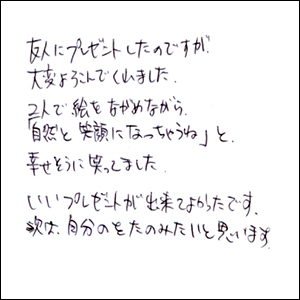 友人にプレゼントしたのですが、
大変よろこんでくれました.
2人で絵をながめながら、
「自然と笑顔になっちゃうね」と、
幸せそうに笑ってました.
いいプレゼントが出来てよかったです.
次は、自分のをたのみたいと思います.